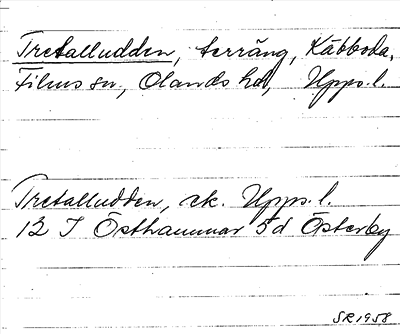 Tretalludden, terräng, Käbboda,
Films sn., Olands hd, Upps. l.
Tretalludden, ek. Upps. l.
12 I Östhammar 5d Österby
SR 1958